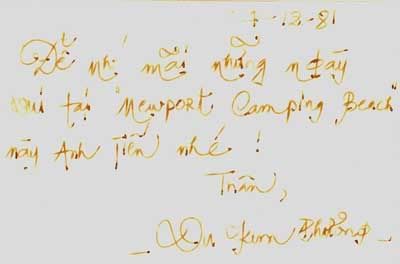 7-12-81
Để nhớ mãi những ngày
vui tại "Newport Camping Beach"
này Anh Tiến nhé !
Trân,
Vu Kim Phượng